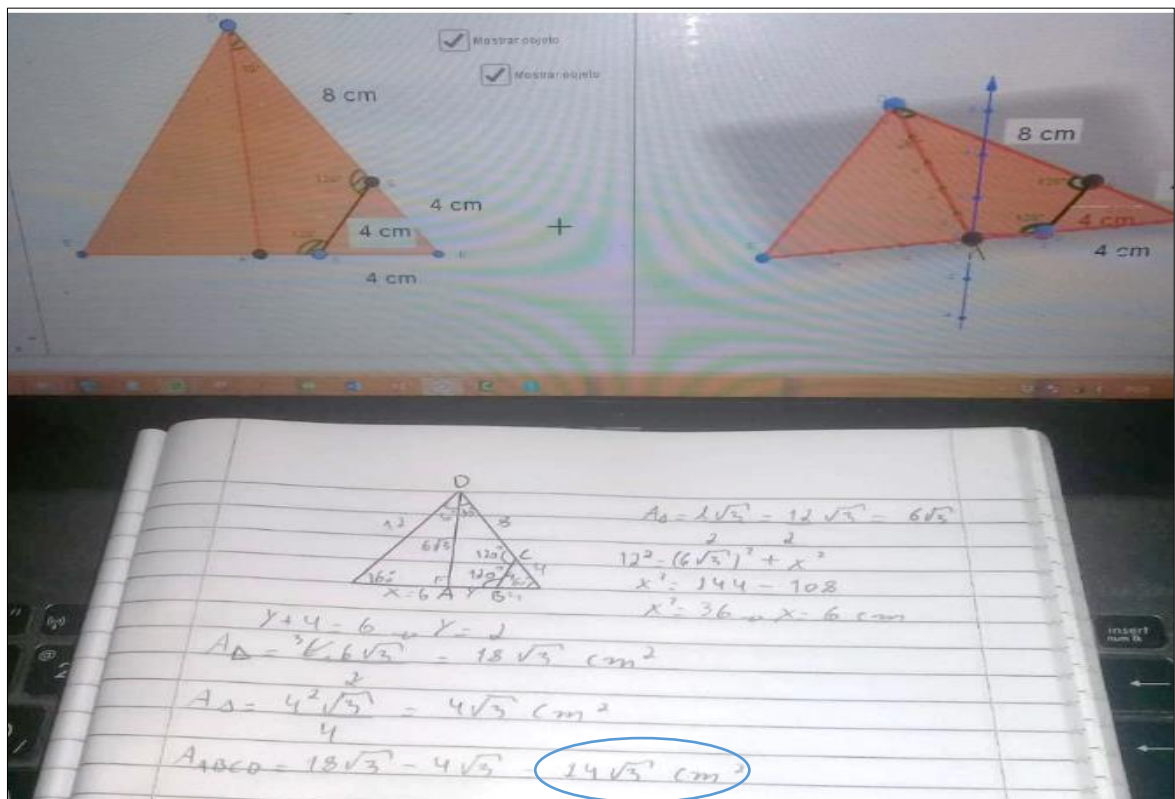 Mostrar objeto
Mostrar objeto
8 cm
120°
4 cm
4 cm
4 cm
8 cm
120°
4 cm
4 cm
D
12
8
6√3
120°
C
120°
4
60°
x=6 A Y B
A△ = l√3 = 12√3 = 6√3
2 2
12² = (6√3)² + x²
x² = 144 - 108
x² = 36 → x = 6 cm
Y + 4 = 6 → Y = 2
A△ = 6.6√3 = 18√3 cm²
2
A△ = 4²√3 = 4√3 cm²
4
AABCD = 18√3 - 4√3 14√3 cm²
insert